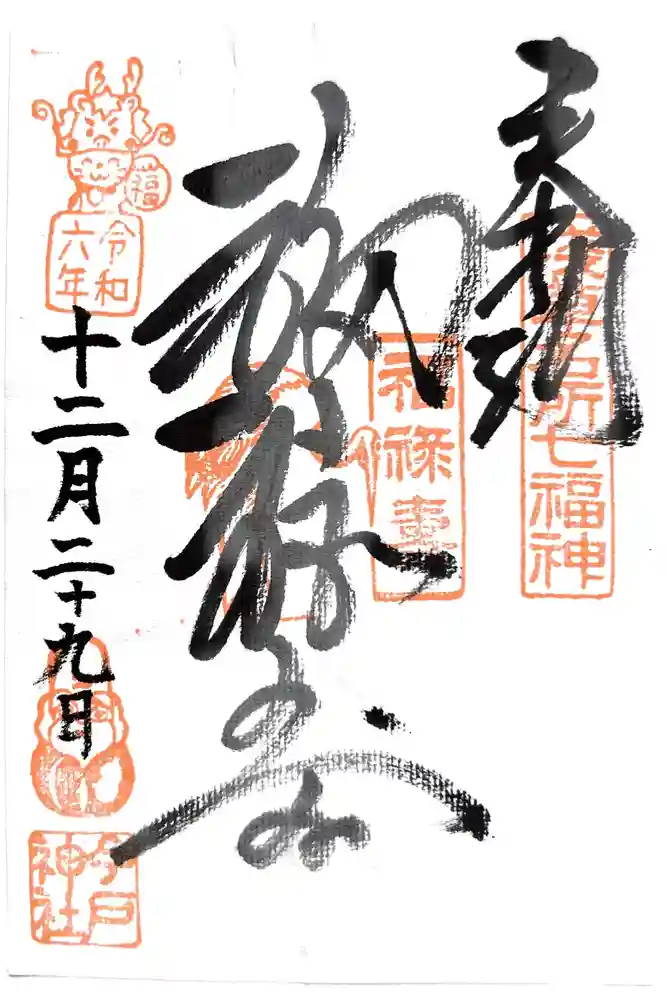 奉拝
浅草名所七福神
福禄壽
福禄寿
福
令和
六年
十二月二十九日
今戸
神社